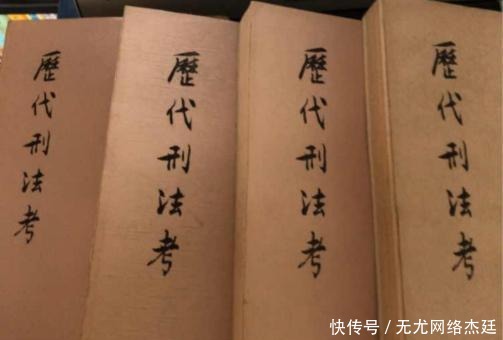 歷代刑法考
歷代刑法考
歷代刑法考
歷代刑法考
快传号／无尤网络杰廷